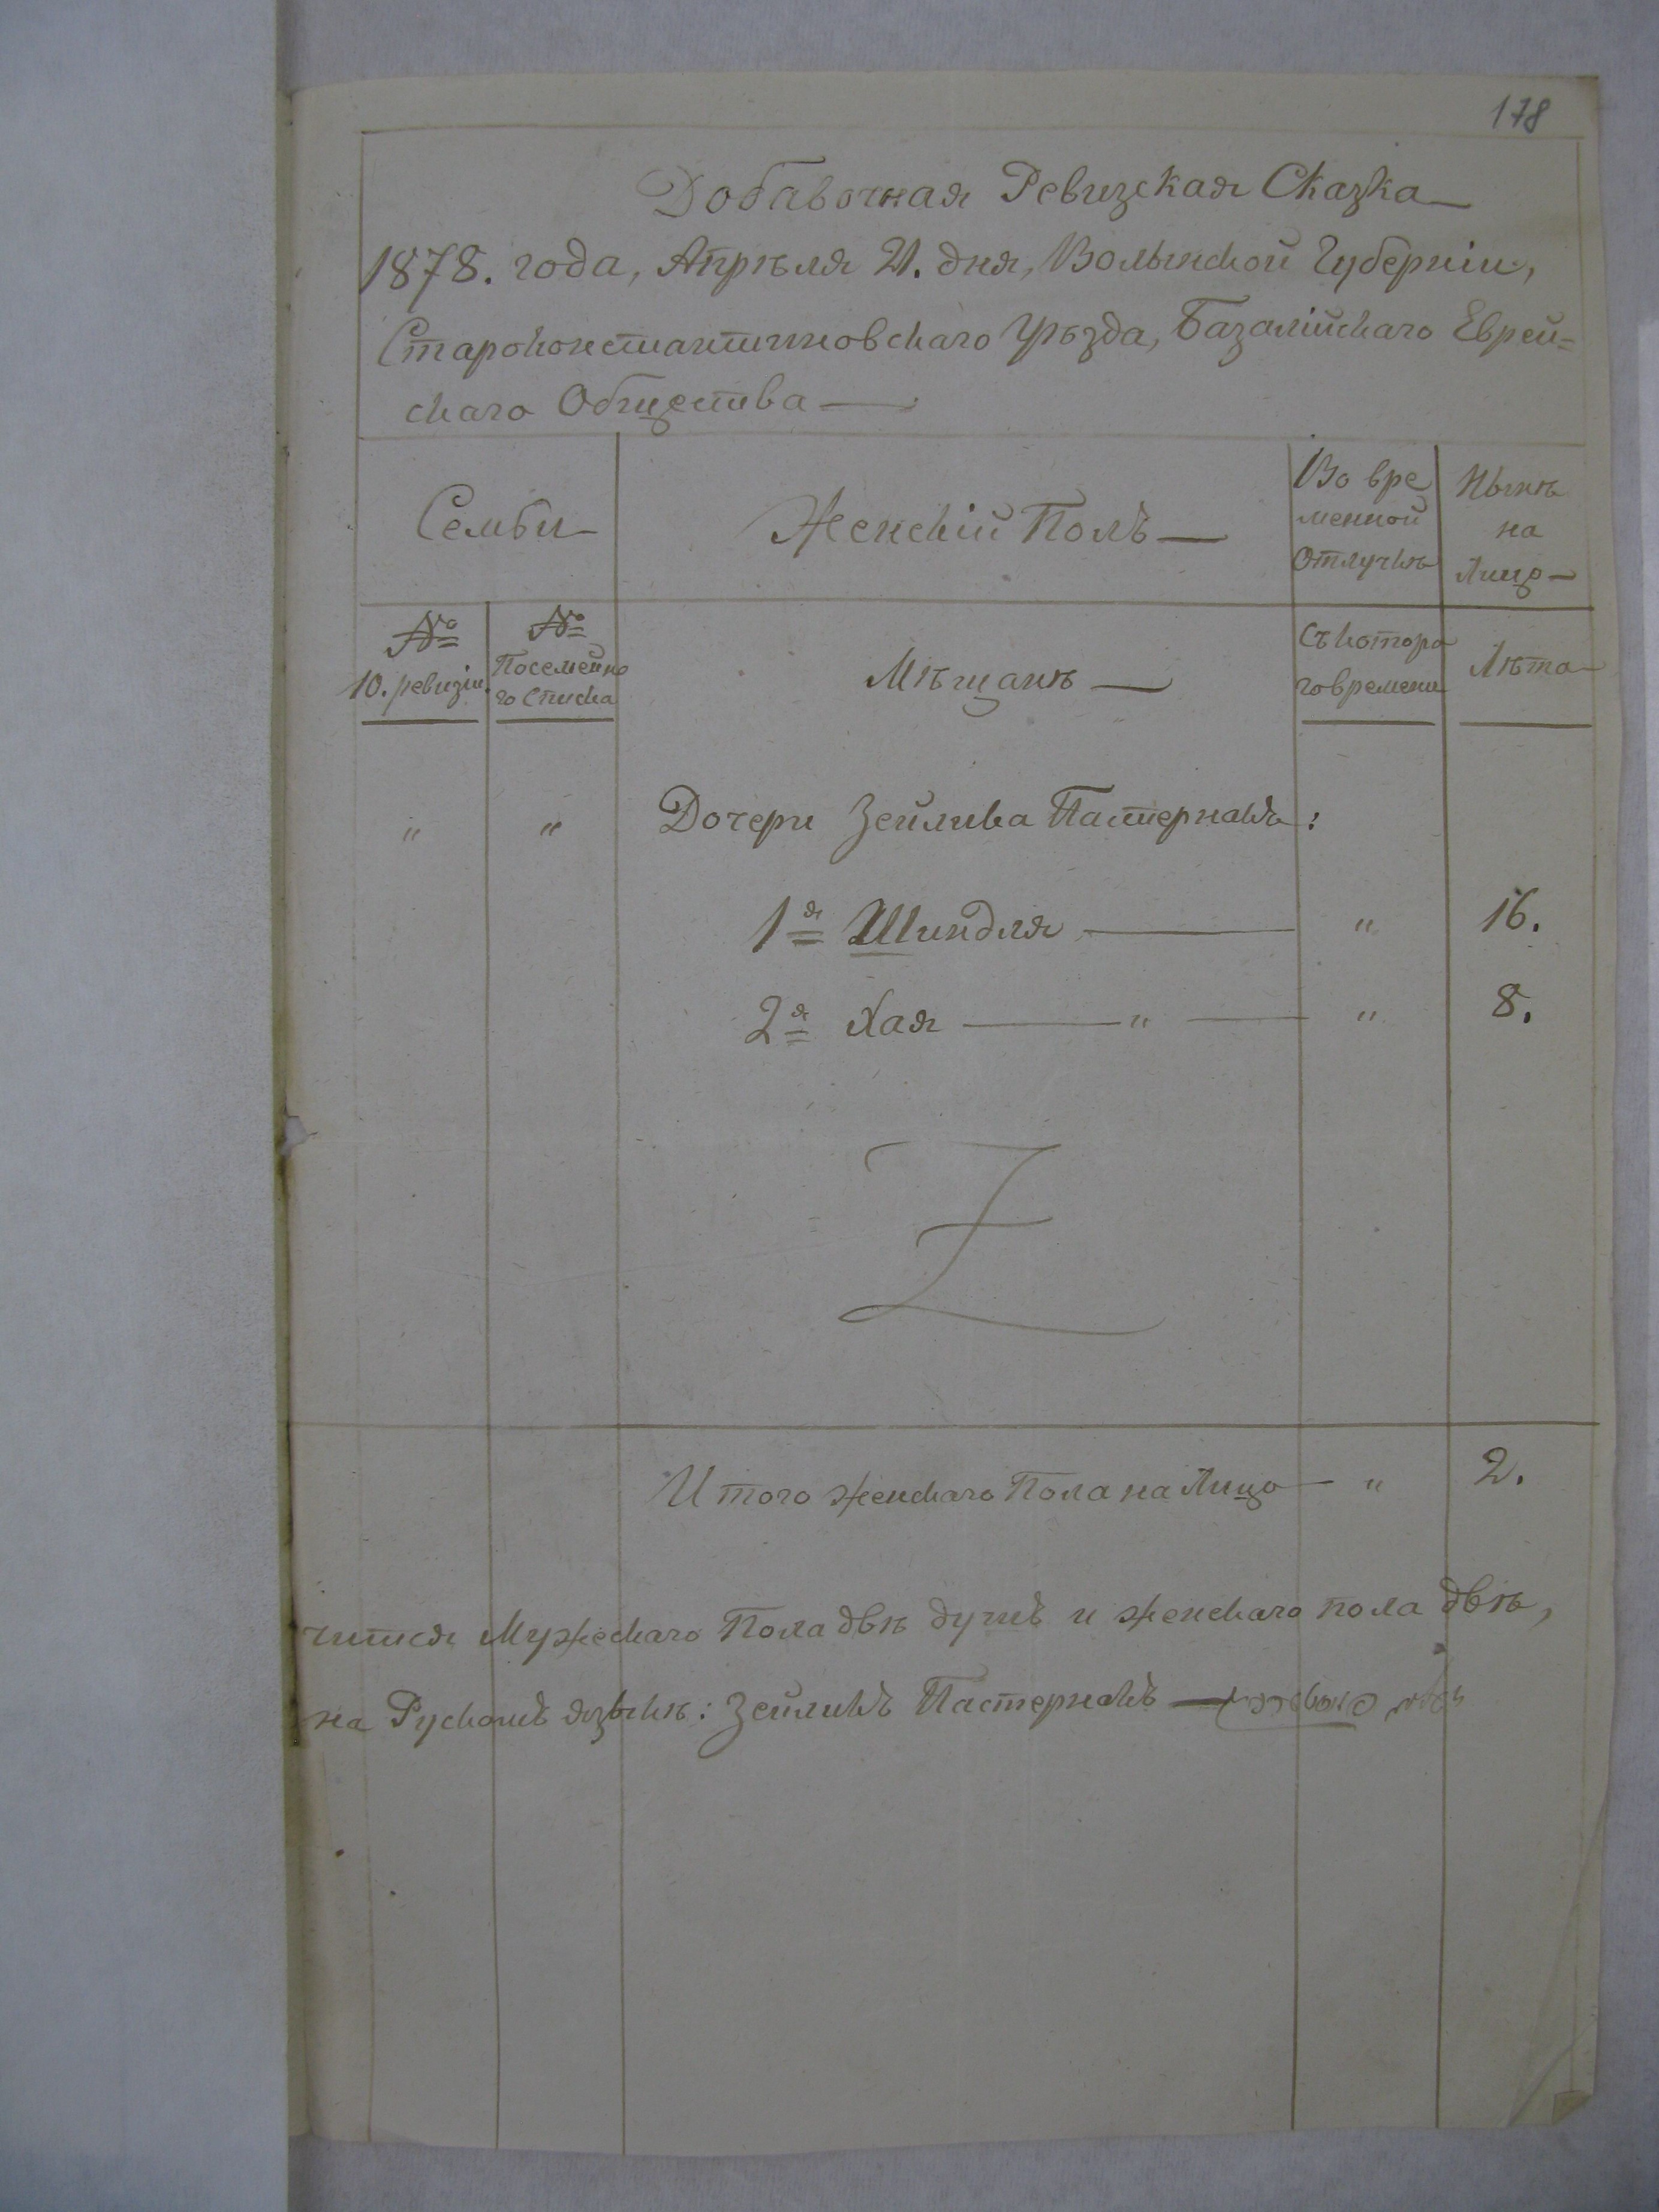 178
Добавочная Ревизская Сказка
1878. года, Апрѣля 21. дня, Волынской Губерніи,
Староконстантиновскаго Уѣзда, Базалійскаго Еврей=
скаго Общества —
Семьи
Женскій Полъ —
Во вре
менной
Отлучкѣ
Нынѣ
на
Лицо —
№
10. ревизіи
№
Посемейно
го Списка
Мѣщанѣ —
Съ котора
го времени
Лѣта
" " Дочери Зейлика Пастернакъ:
1я Шиндля — " 16.
2я Хая — " — " 8.
Итого женскаго Пола на Лицо — " 2.
чится Мужескаго Пола двѣ душъ и женскаго пола двѣ,
на Рускомъ языкѣ: Зейликъ Пастернакъ —